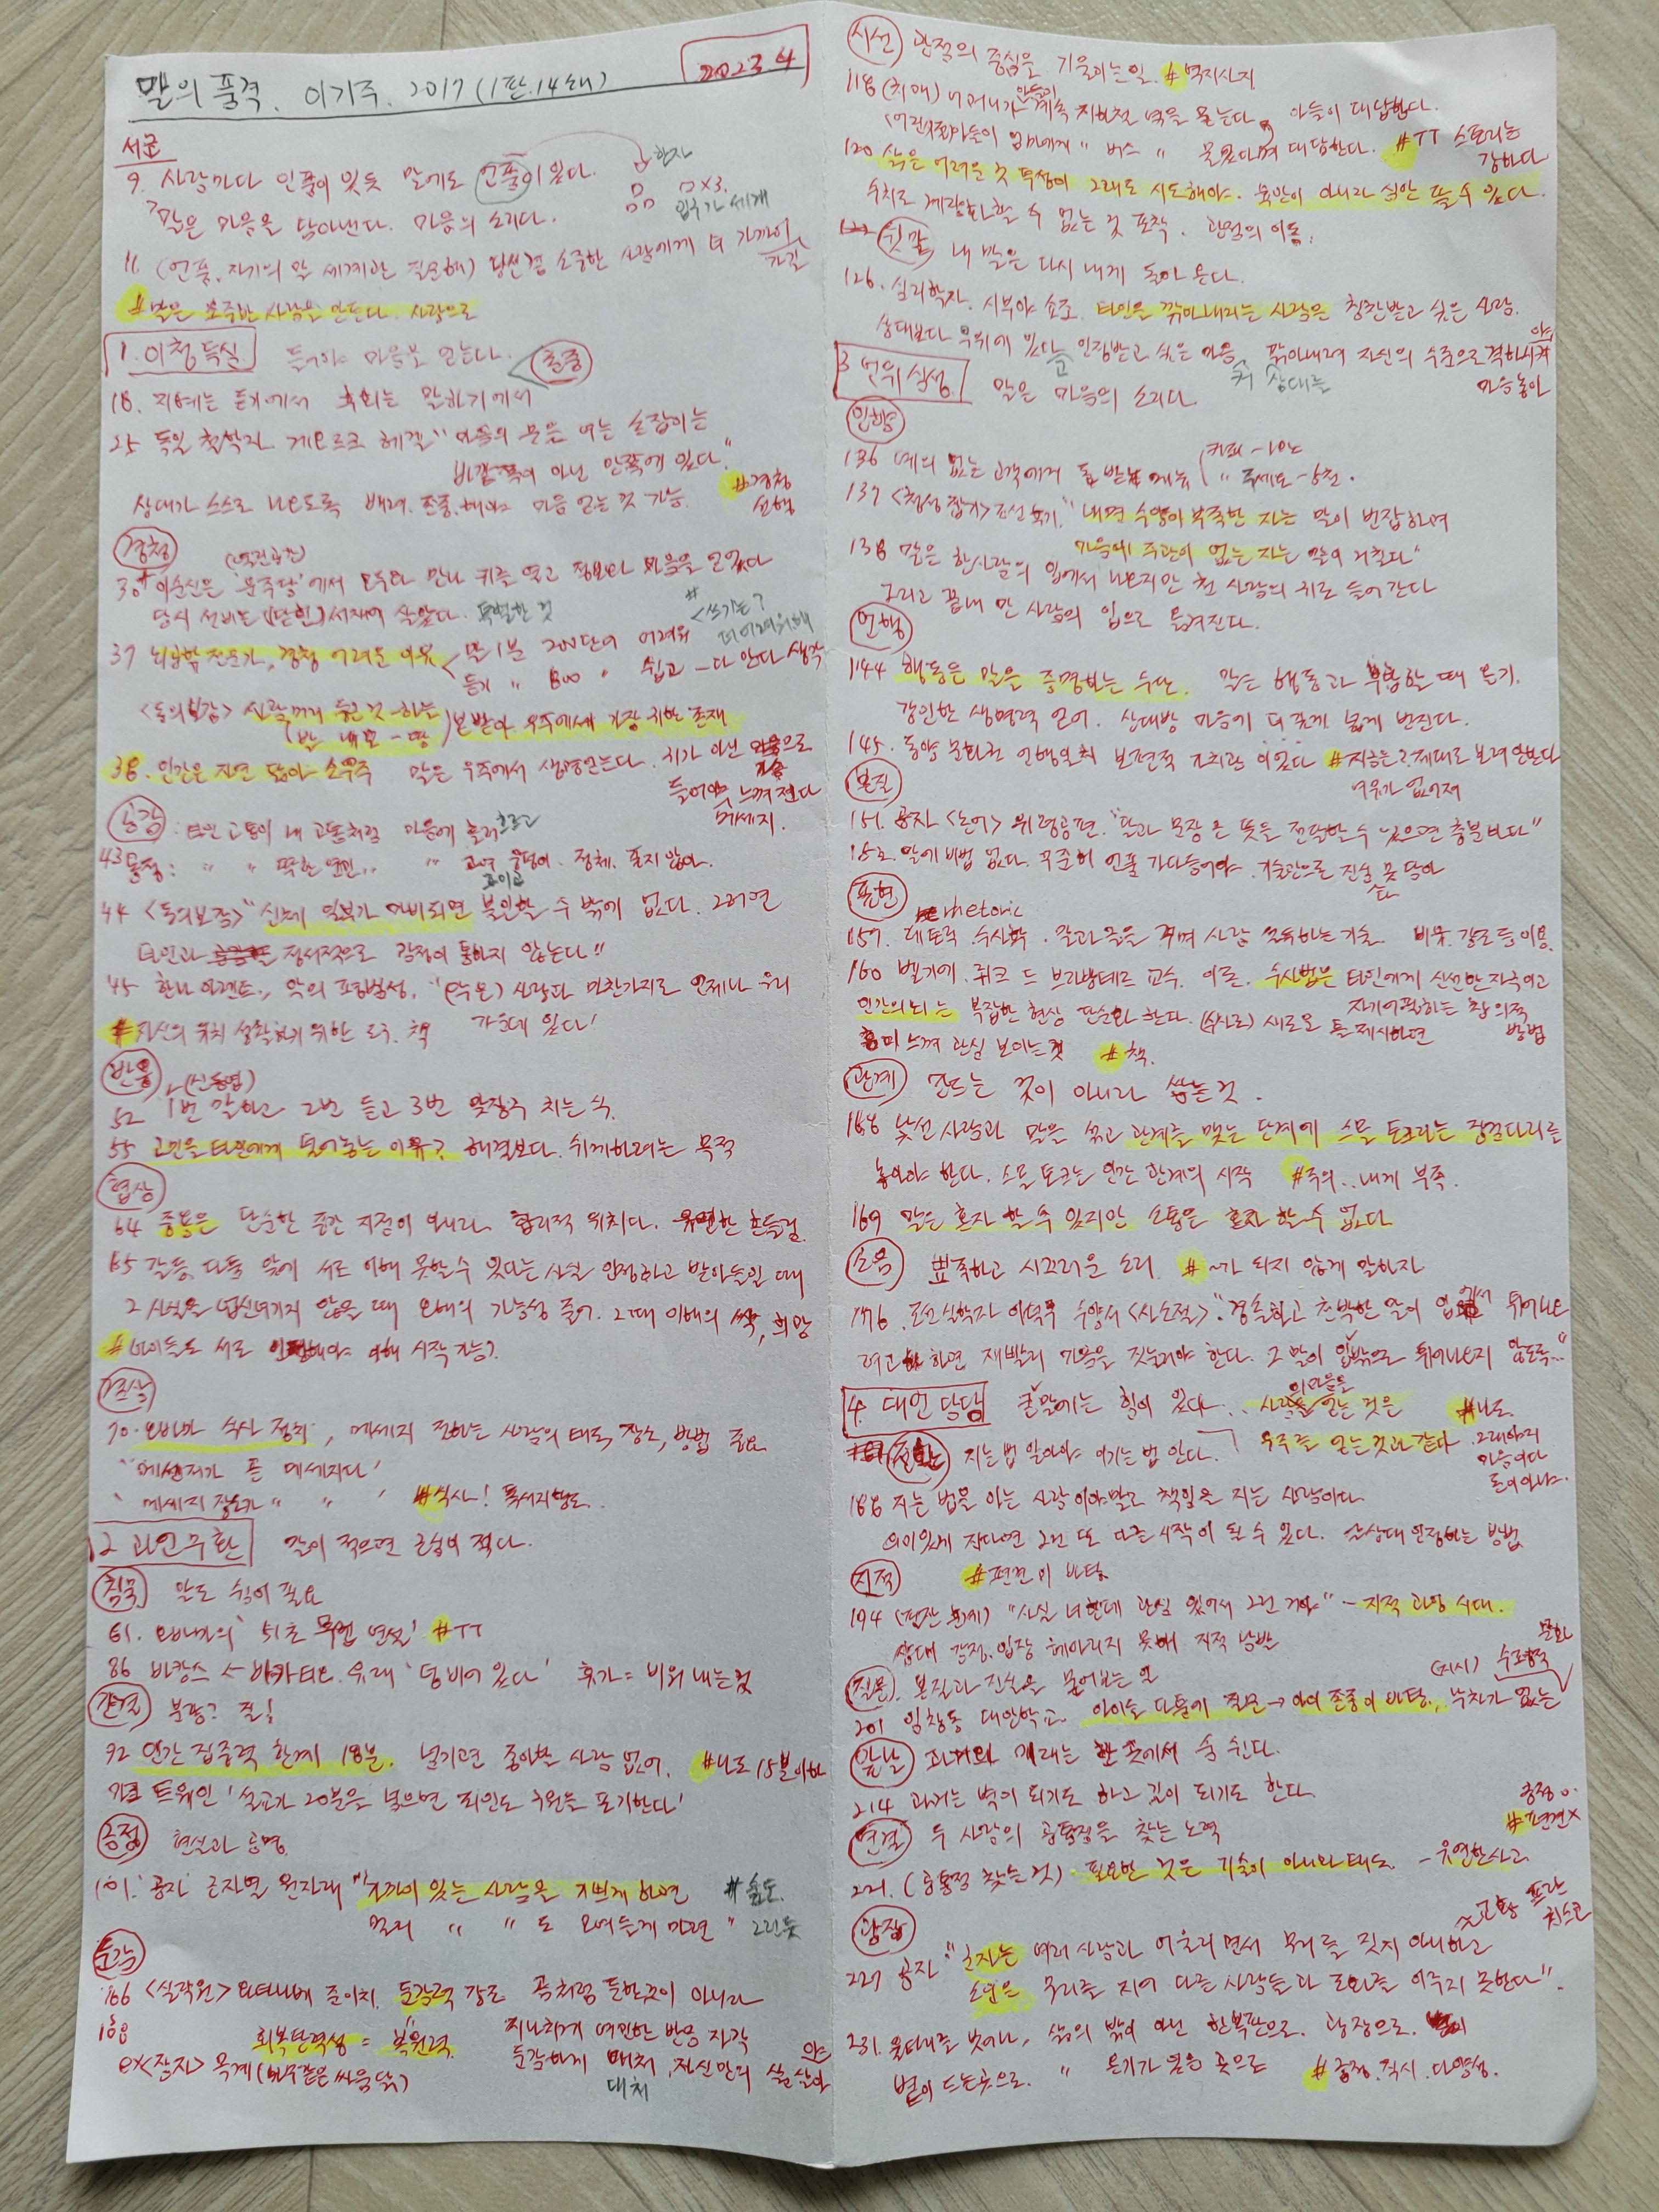 말의 품격. 이기주. 2017 (1판.14쇄)
2023.4
서문
9. 사람마다 인품이 있듯 말에도 언품이 있다.
한자
□×3.
입구가 세개
말은 마음을 담아낸다. 마음의 소리다.
11. (언품. 자기의 말 세계관 필요해) 당신경 소중한 사람에게 더 가까이
가길
#말은 소중한 사람을 만든다. 사람으로
1. 이청득심. 들어야 마음을 얻는다.
존중
18. 지혜는 듣기에서 후회는 말하기에서
25 독일 철학자 게오르크 헤겔 "마음의 문을 여는 손잡이는
바깥쪽이 아닌 안쪽에 있다."
상대가 스스로 나오도록 배려. 존중.해야 마음 얻는 것 가능.
#경청
실행
경청
30 이순신은 '운주당'에서 모두와 만나 귀를 열고 정보와 마음을 얻었다
당시 선비는 (닫힌) 서재에 살았다. 특별한 것
37 뇌과학 전문가, 경청 어려운 이유
말 1분 200단어 어려워
듣기 " 800 " 쉽고 -다 안다 생각
#<쓰기는?
더 어려워해
<동의보감> 사람머리 둥근 것 -하늘
발 네모 -땅
본받아 우주에서 가장 귀한 존재
38. 인간은 자연 닮아 소우주 말은 우주에서 생명얻는다. 귀가 아닌 마음으로
들어야 느껴진다
메세지.
공감 : 타인 고통이 내 고통처럼 마음에 흘러 흐르고
43 동정 : " " 딱한 연민.. " 고여 웅덩이. 정체. 포지 않아.
44 <동의보감> "신체 일부가 마비되면 불인할 수 밖에 없다. 그러면
타인과 정서적으로 감정이 통하지 않는다"
45 한나 아렌트., 악의 평범성. "(악은) 사람과 마찬가지로 언제나 우리
가운데 있다'
#자신의 위치 성찰하기 위한 도구. 책
반응 (신동엽)
52 1번 말하고 2번 듣고 3번 맞장구 치는 식.
55 고민을 타인에게 털어놓는 이유? 해결보다. 위로하려는 목적
협상
64 중용은 단순한 중간 지점이 아니라 합리적 위치다. 유연한 흔들림
65 갈등. 다툼 앞에 서로 이해 못할 수 있다는 사실 인정하고 받아들일 때
그 사실을 업신여기지 않을 때 오해의 가능성 줄어. 그때 이해의 싹, 희망
#아이들도 서로 인정해야 이해 시작 가능?
겸상
70. 오바마 식사 정치, 메세지 전하는 사람의 태도, 장소, 방법 중요
"메신저가 곧 메세지다"
" 메세지 장소가 " " #식사! 독서지향도..
2 과언무환 말이 적으면 근심이 적다.
침묵 말도 쉼이 필요
61. 오바마의 '51초 무언 연설' #TT
86 바캉스 ← 바카티오 유래 '텅 비어 있다' 휴가 = 비워 내는 것
간결 본능? 질!
92 인간 집중력 한계 18분. 넘기고면 좋아할 사람 없어. #나도 15분이하
마크 트웨인 '설교가 20분을 넘으면 죄인도 구원을 포기한다'
긍정 현실과 공명
101. 공자 근자열 원자래 "가까이 있는 사람을 기쁘게 하면
멀리 " " 도 모여들게 마련"
#숲도.
그런듯
둔감
106 <실락원> 와타나베 준이치. 둔감력 강조 곰처럼 둔한것이 아니라
108 회복탄력성 = 복원력. 지나치게 예민한 반응 자각
둔감하게 대처, 자신만의 삶 살아야
대처
ex<장자> 목계 (나무같은 싸움닭)
시선 관점의 중심을 기울이는 일. #역지사지
118 (치매) 어머니가 아들에게 계속 지하철 벽을 묻는다, 아들이 대답한다.
(어린시절) 아들이 엄마에게 " 버스 " 물었다며 대답한다. #TT 스토리는
강하다
120 삶은 어려운 것 투성이 그래도 시도해야. 육안이 아니라 심안 뜰 수 있다.
수치로 계량화할 수 없는 것 포착. 관점의 이동.
122 뒷말 내 말은 다시 내게 돌아 온다.
126. 심리학자. 시부야 쇼조. 타인을 깎아내리는 사람은 칭찬받고 싶은 사람.
상대보다 우위에 있다고 인정받고 싶은 마음. 깎아내려 자신의 수준으로 격하시켜야
상대를
마음놓아
3 언위심성 말은 마음의 소리다
인향
136 예의 없는 고객에게 돌 받는 메뉴 (커피 -10노
" 주세요 -5천.
137 <청성잡기> 조선 후기. "내면 수양이 부족한 자는 말이 번잡하며
마음에 주관이 없는 자는 말이 거칠다"
138 말은 한사람의 입에서 나오지만 천 사람의 귀로 들어간다
그리고 끝내 만 사람의 입으로 옮겨진다.
언행
144 행동은 말을 증명하는 수단. 말은 행동과 부합할 때 온기.
강인한 생명력 얻어. 상대방 마음에 더 깊게 넓게 번진다.
145. 동양 문화권 언행일치 보편적 가치관 이었다 #지금은? 제대로 보려 안본다
여유가 없어져
본질
151. 공자 <논어> 위령공편. "말과 문장은 뜻을 전달할 수 있으면 충분하다"
152. 말에 비법 없다. 꾸준히 언품 가다듬어야. 기술만으로 진심 못 담아
표현
rhetoric
157. 레토릭 수사학. 말과 글을 꾸며 사람 설득하는 기술. 비유. 강조 등 이용.
160 벨기에. 뤼크 드 브라방데르 교수. 이론. 수사법은 타인에게 신선한 자극이고
인간의 뇌는 복잡한 현상 단순화 한다. (수사로) 새로운 틀 제시하면
자기어필하는 창의적
방법
흥미 느껴 관심 보이는 것 #책.
관계 만드는 것이 아니라 쌓는 것.
168 낯선 사람과 말을 섞고 관계를 맺는 단계에 스몰 토크라는 징검다리를
놓아야 한다. 스몰 토크는 인간 관계의 시작 #주의.. 내게 부족.
169 말은 혼자 할 수 있지만 소통은 혼자 할 수 없다
소음 뾰족하고 시끄러운 소리. # ~가 되지 않게 말하자
176. 조선 실학자 이덕무 수양서 <사소절>. "경솔하고 천박한 말이 입에서 튀어나오
려고 하면 재빨리 마음을 짓눌러야 한다. 그 말이 입밖으로 튀어나오지 않도록.."
4. 대언담담 큰말에는 힘이 있다.. 사람의 마음을 얻는 것은
우주를 얻는 것과 같다
#나도.
그래야지
마음이다
돈이 아냐.
전환 지는 법 알아야 이기는 법 안다.
188 지는 법을 아는 사람이야말로 책임을 지는 사람이다.
의미있게 진다면 그건 또 다른 시작이 될 수 있다. 상대 인정하는 방법
지적 #편견이 바탕
194 (편잔 한계) "사실 너한테 관심 있어서 그런 거야" - 지적 과잉 시대.
상대 감정. 입장 헤아리지 못해 지적 남발
질문. 본질과 진심을 물어보는 일
201 일창동 대안학교. 아이들 다툼에 질문 → 아이 존중이 바탕, 눅치가 없는
(지시) 수평적
문화
앞날 과거와 미래는 한 곳에서 숨 쉰다.
214 과거는 벽이 되기도 하고 길이 되기도 한다
연결 두 사람의 공통점을 찾는 노력
긍정 o.
#편견x
221. (공통점 찾는 것). 필요한 것은 기술이 아니라 태도 - 유연한 사고
광장
~교황 프란
치스코
227 공자 "군자는 여러 사람과 어울리면서 무리를 짓지 아니하고
소인은 무리를 지어 다른 사람들과 조화를 이루지 못한다".
231. 울타리를 벗어나, 삶의 밖이 아닌 한복판으로. 광장으로.
볕이 드는곳으로. " 온기가 있는 곳으로 #긍정. 직시. 다양성.